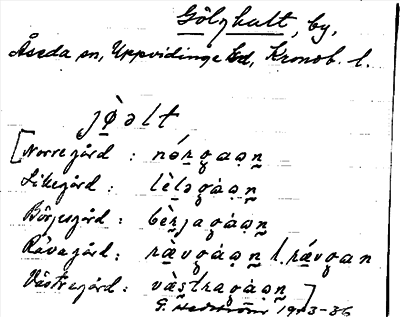 Gölshult, by,
Åseda sn, Uppvidinge hd, Kronob. l.
jø̀əlt
[Norregård : nórgaaṇ
Lillegård : lèləgàaṇ
Börjesgård : bèrjagàaṇ
Rävagård : rävgàaṇ l. rávgan
Västregård : västragàaṇ ]
G. Hedström 1933-36